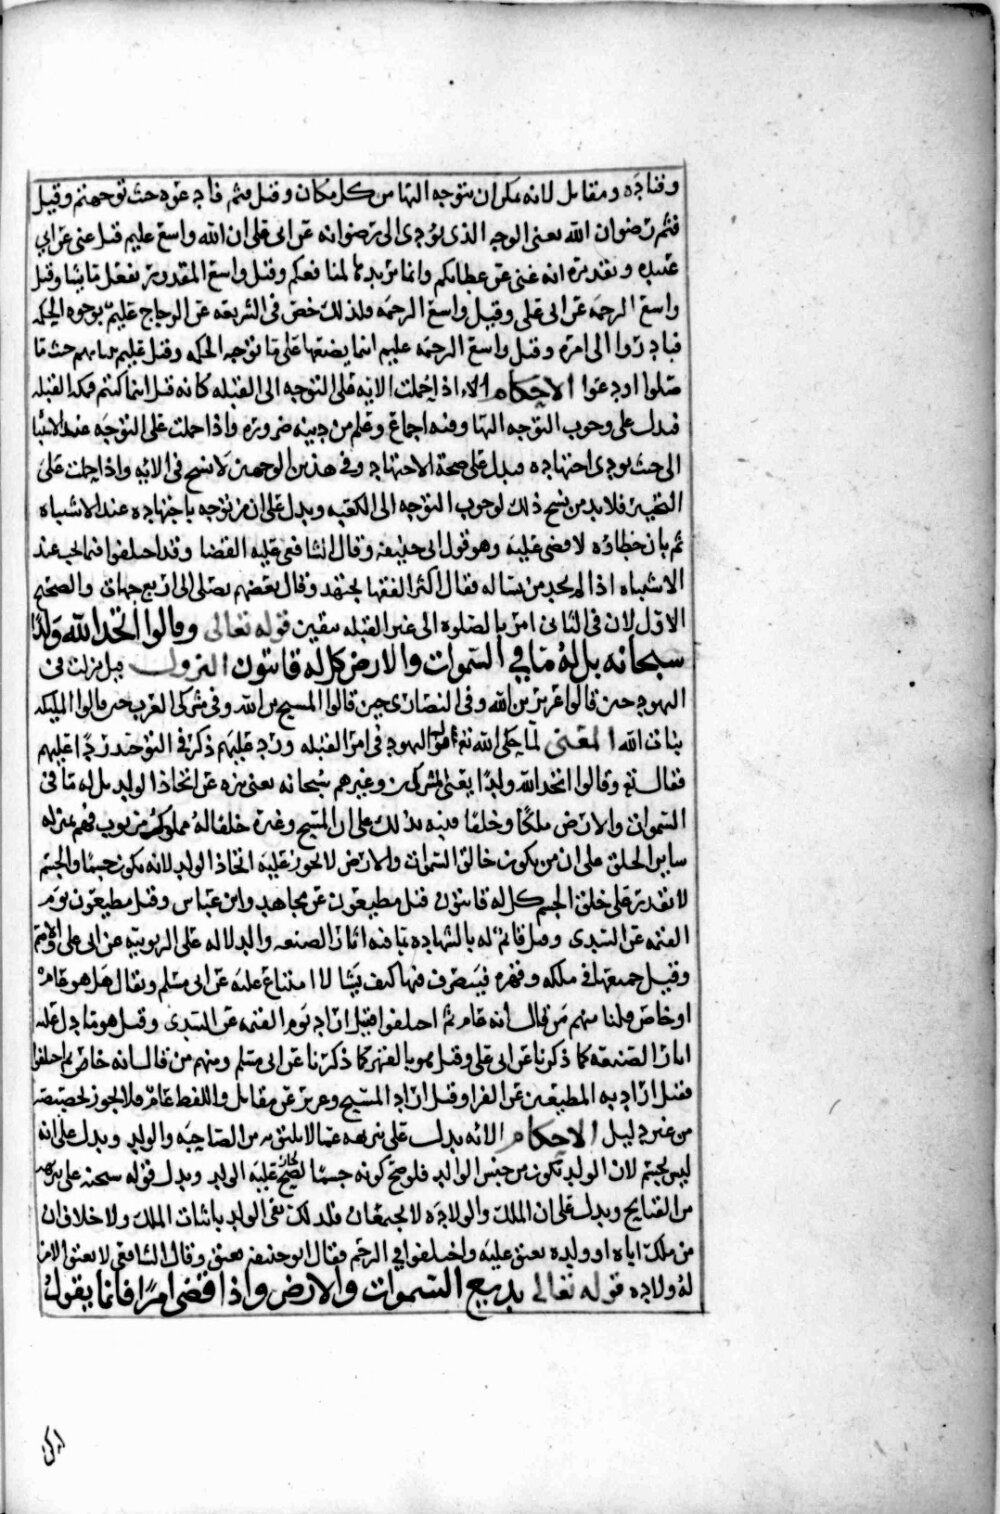 وقتاده ومقاتل لانه يمكن ان يتوجه اليها من كل مكان وقيل فثم فادعوه حيث توجهتم وقيل
فثم رضوان الله يعني الوجه الذي يؤدي الى رضوانه عن ابي علي ان الله واسع عليم قيل غني عن ابي
عبيده وتقديره انه غني عن عطاياكم وانما يريد لمنافعكم وقيل واسع المقدور يفعل ما يشا وقيل
واسع الرحمه عن ابي علي وقيل واسع الرحمه فلذلك رخص في الشريعه عن الزجاج عليم بوجوه الحكمه
فبادروا الى امره وقيل واسع الرحمه عليم اينما يضعها على ما توجبه الحكمه وقيل عليم بنياتهم حيث ما
صلوا او دعوا الاحكام الايه اذا حملت الايه على التوجه الى القبله كانه قيل اينما كنتم فمكه القبله
فيدل على وجوب التوجه اليها وفيه اجماع وعلم من دينه ضروره واذا حملت على التوجه عند الاشتباه
الى حيث يودي اجتهاده فيدل على صحة الاجتهاد وفي هذين الوجهين لا نسخ في الايه واذا حملت على
التخيير فلا بد من نسخ ذلك لوجوب التوجه الى الكعبه ويدل على ان من توجه باجتهاده عند الاشتباه
ثم بان خطاؤه لا قضى عليه وهو قول ابي حنيفه وقال الشافعي عليه القضا وقد اختلفوا فيما يجب عند
الاشتباه اذا لم يجد من يساله فقال اكثر الفقها يجتهد وقال بعضهم يصلي الى اربع جهات والصحيح
الاول لان في الثاني امر بالصلوه الى غير القبله بيقين قوله تعالى وقالوا اتخذ الله ولدا
سبحانه بل له ما في السموات والارض كل له قانتون النزول قيل نزلت في
اليهود حين قالوا عزير بن الله وفي النصارى حين قالوا المسيح بن الله وفي مشركي العرب حين قالوا المليكه
بنات الله المعنى لما حكى الله تع قول اليهود في امر القبله ورد عليهم ذكر في التوحيد ردا عليهم
فقال تع وقالوا اتخذ الله ولدا يعني المشركين وغيرهم سبحانه يعني نزه عن اتخاذ الولد بل له ما في
السموات والارض ملكا وخلقا فنبه بذلك على ان المسيح وغيره خلقا له مملوك مربوب فهم بمنزله
ساير الخلق على ان من يكون خالق السموات والارض لا يجوز عليه اتخاذ الولد لانه يكون جسما والجسم
لا يقدر على خلق الجسم كل له قانتون قيل مطيعون عن مجاهد وابن عباس وقيل مطيعون يوم
القيمه عن السدي وقيل قايم له بالشهاده بما فيه اثار الصنعه والدلاله على الربوبيه عن ابي علي والاصم
وقيل جميعها في ملكه وقهره فيتصرف فيها كيف يشا لا امتناع عليه عن ابي مسلم ويقال هل هو عام
او خاص قلنا منهم من قال انه عام ثم اختلفوا فقيل اراد يوم القيمه عن السدي وقيل هو ما دل عليه
اثار الصنعه كما ذكرنا عن ابي علي وقيل هو بالقهر كما ذكرنا عن ابي مسلم ومنهم من قال انه خاص ثم اختلفوا
فقيل اراد به المطيعين عن الفرا وقيل اراد المسيح وعزير عن مقاتل واللفظ عام فلا يجوز تخصيصه
من غير دليل الاحكام الايه يدل على تنزيهه عما لا يليق به من الصاحبه والولد ويدل على انه
ليس بجسم لان الولد يكون من جنس الوالد فلو صح كونه جسما لصح عليه الولد ويدل قوله سبحنه على تنزيهه
من القبايح ويدل على ان الملك والولاده لا يجتمعان فلذلك نفى الولد باثبات الملك ولا خلاف ان
من ملك اباه او ولده يعتق عليه واختلفوا في الرحم فقال ابو حنيفه يعتق وقال الشافعي لا يعتق الا من
له ولاده قوله تعالى بديع السموات والارض واذا قضى امرا فانما يقول